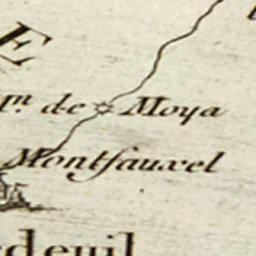 E
pⁿ. de Moya
Montfauxel
deuil